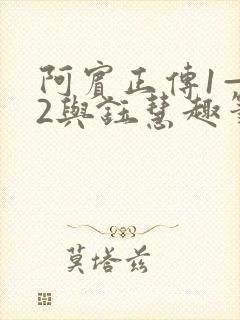 阿賓正傳1—
2與鈺慧趣
莫塔兹